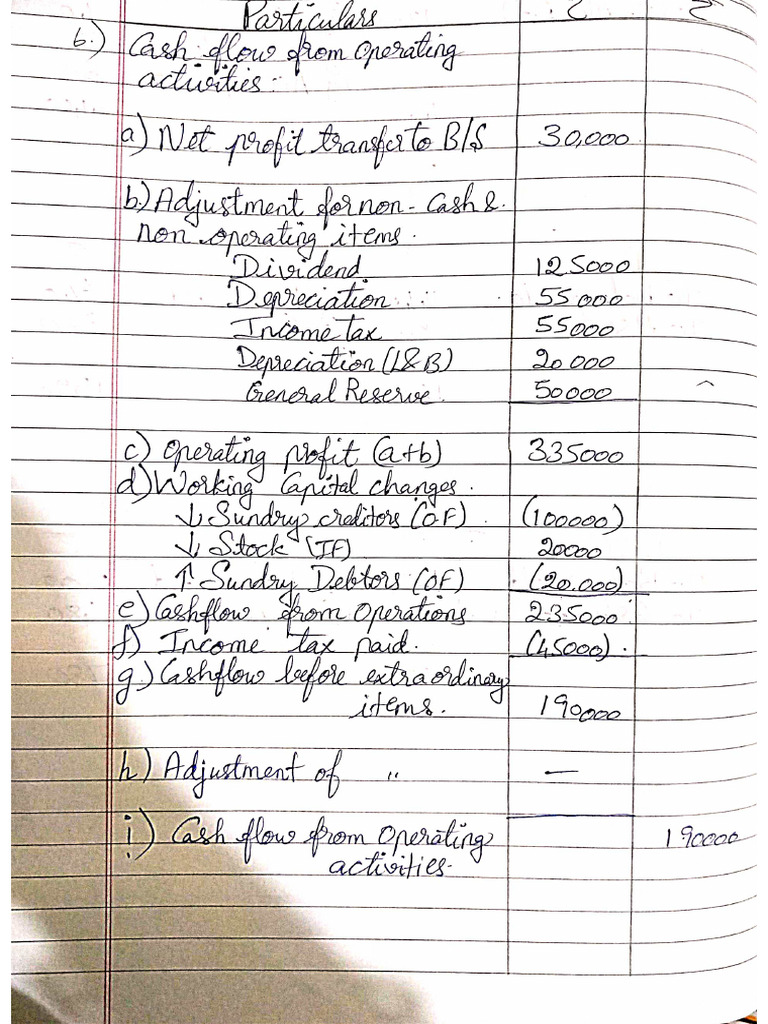 Particulars ₹ ₹
6.) Cash flow from operating
activities:-
a) Net profit transfer to B/S 30,000
b.) Adjustment for non-cash &
non operating items.
Dividend 125000
Depreciation 55000
Income tax 55000
Depreciation (L&B) 20000
General Reserve 50000
c) Operating profit (a+b) 335000
d) Working Capital changes.
↓ Sundry creditors (OF) (100000)
↓ Stock (IF) 20000
↑ Sundry Debtors (OF) (20.000)
e) Cashflow from Operations 235000
f) Income tax paid. (45000).
g.) Cashflow before extraordinary
items. 190000
h) Adjustment of " —
i) Cash flow from Operating 190000
activities-